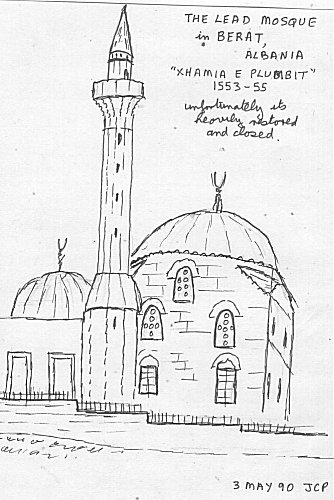 THE LEAD MOSQUE
in BERAT,
ALBANIA
"XHAMIA E PLUMBIT"
1553-55
unfortunately its
heavily restored
and closed.
3 MAY 90 JCP